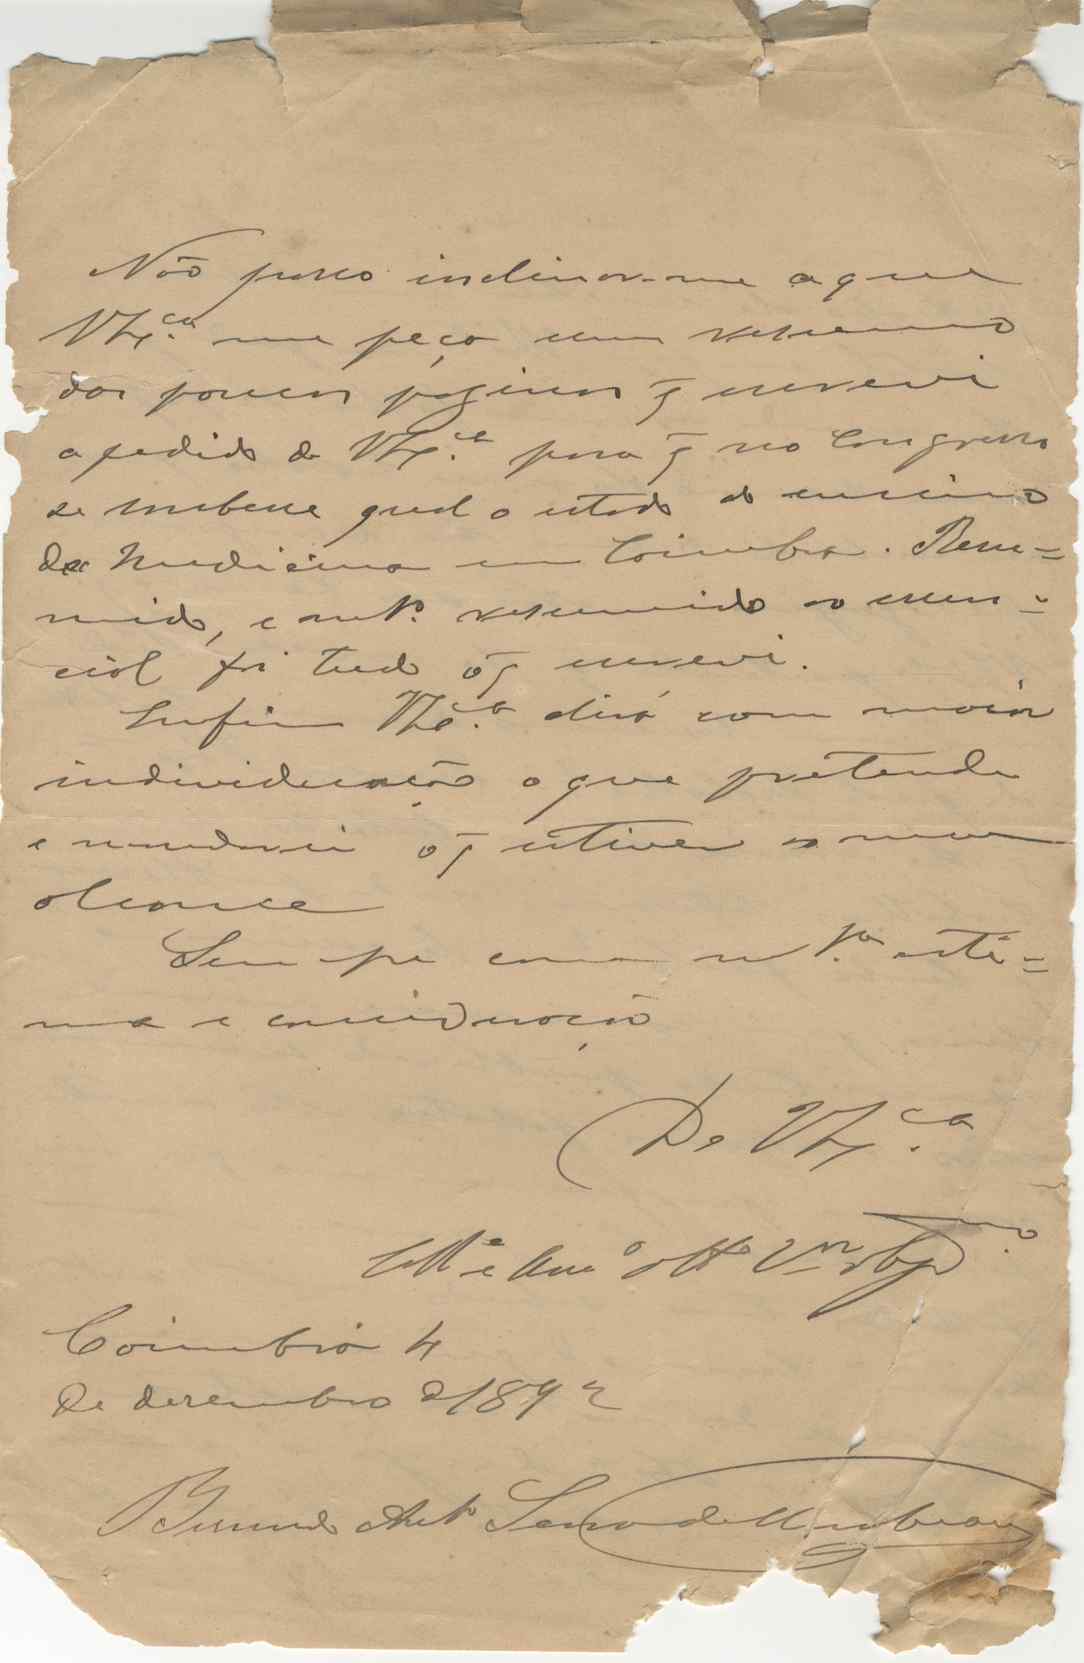 Não posso inclinar-me a que
V.Ex.cia me peça um resumo
das poucas paginas q̃ escrevi
a pedido de V.Ex.cia para q̃ no Congresso
se soubesse qual o estado do ensino
da Medicina em Coimbra. Resu=
mido, e mt.º resumido ao essen=
cial foi tudo o q̃ escrevi.
Enfim V.Ex.cia dirá com maior
individuação o que pretende
e mandarei o q̃ estiver ao meu
alcance
Sempre com mt.ª esti=
ma e consideração
De V.Ex.cia
Coll.ª e Am.º
Coimbra 4
de dezembro de 1892
Bernardo Ant.º Serra de Mirabeau